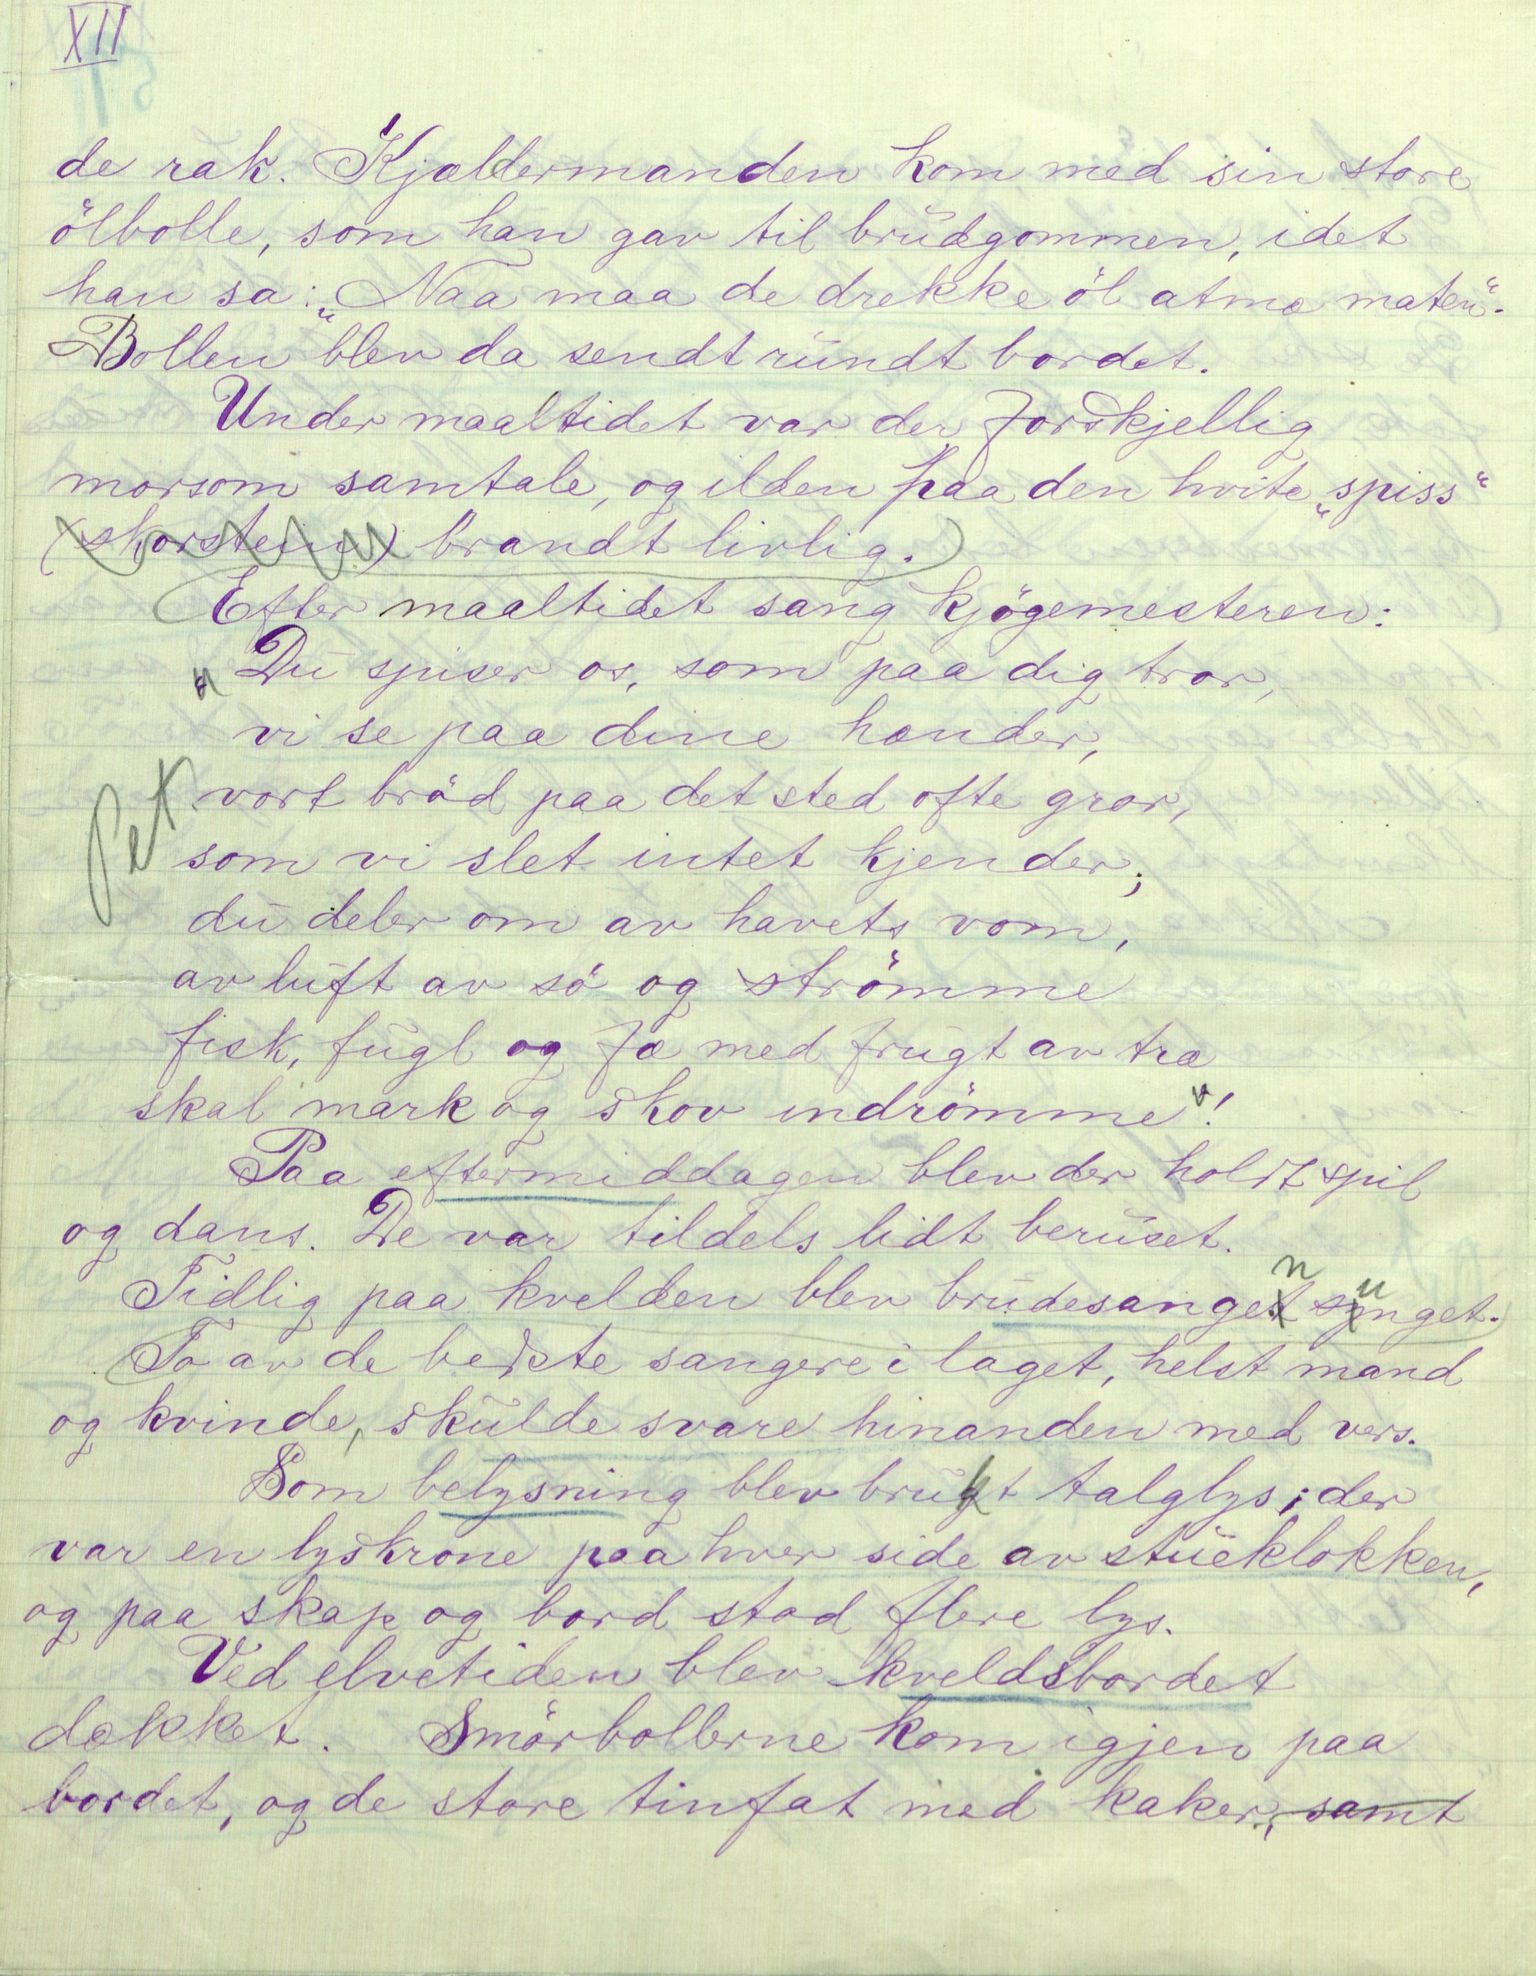 XII
de rak. Kjældermanden kom med sin store
ölbolle, som han gav til brudgommen, idet
han sa: „Naa maa de drekke öl atmæ maten“.
Bollen blev da sendt rundt bordet.
Under maaltidet var der forskjellig
morsom samtale, og ilden paa den hvite „spiss“
(skorstein) brandt livlig.
Efter maaltidet sang kjögemesteren:
„Du spiser os, som paa dig tror,
vi se paa dine hænder,
Pet.
vort bröd paa det sted ofte gror,
som vi slet intet kjender;
du deler om av havets vom,
av luft av sö og strömme
fisk, fugl og fæ med frugt av træ
skal mark og skov indrömme“!
Paa eftermiddagen blev der holdt spil
og dans. De var tildels lidt beruset.
Tidlig paa kvelden blev brudesangen sunget.
To av de bedste sangere i laget, helst mand
og kvinde, skulde svare hinanden med vers.
Som belysning blev brukt talglys; der
var en lyskrone paa hver side av stueklokken,
og paa skap og bord stod flere lys.
Ved elvetiden blev kveldsbordet
dækket. Smörbollerne kom igjen paa
bordet, og de store tinfat med kaker, samt